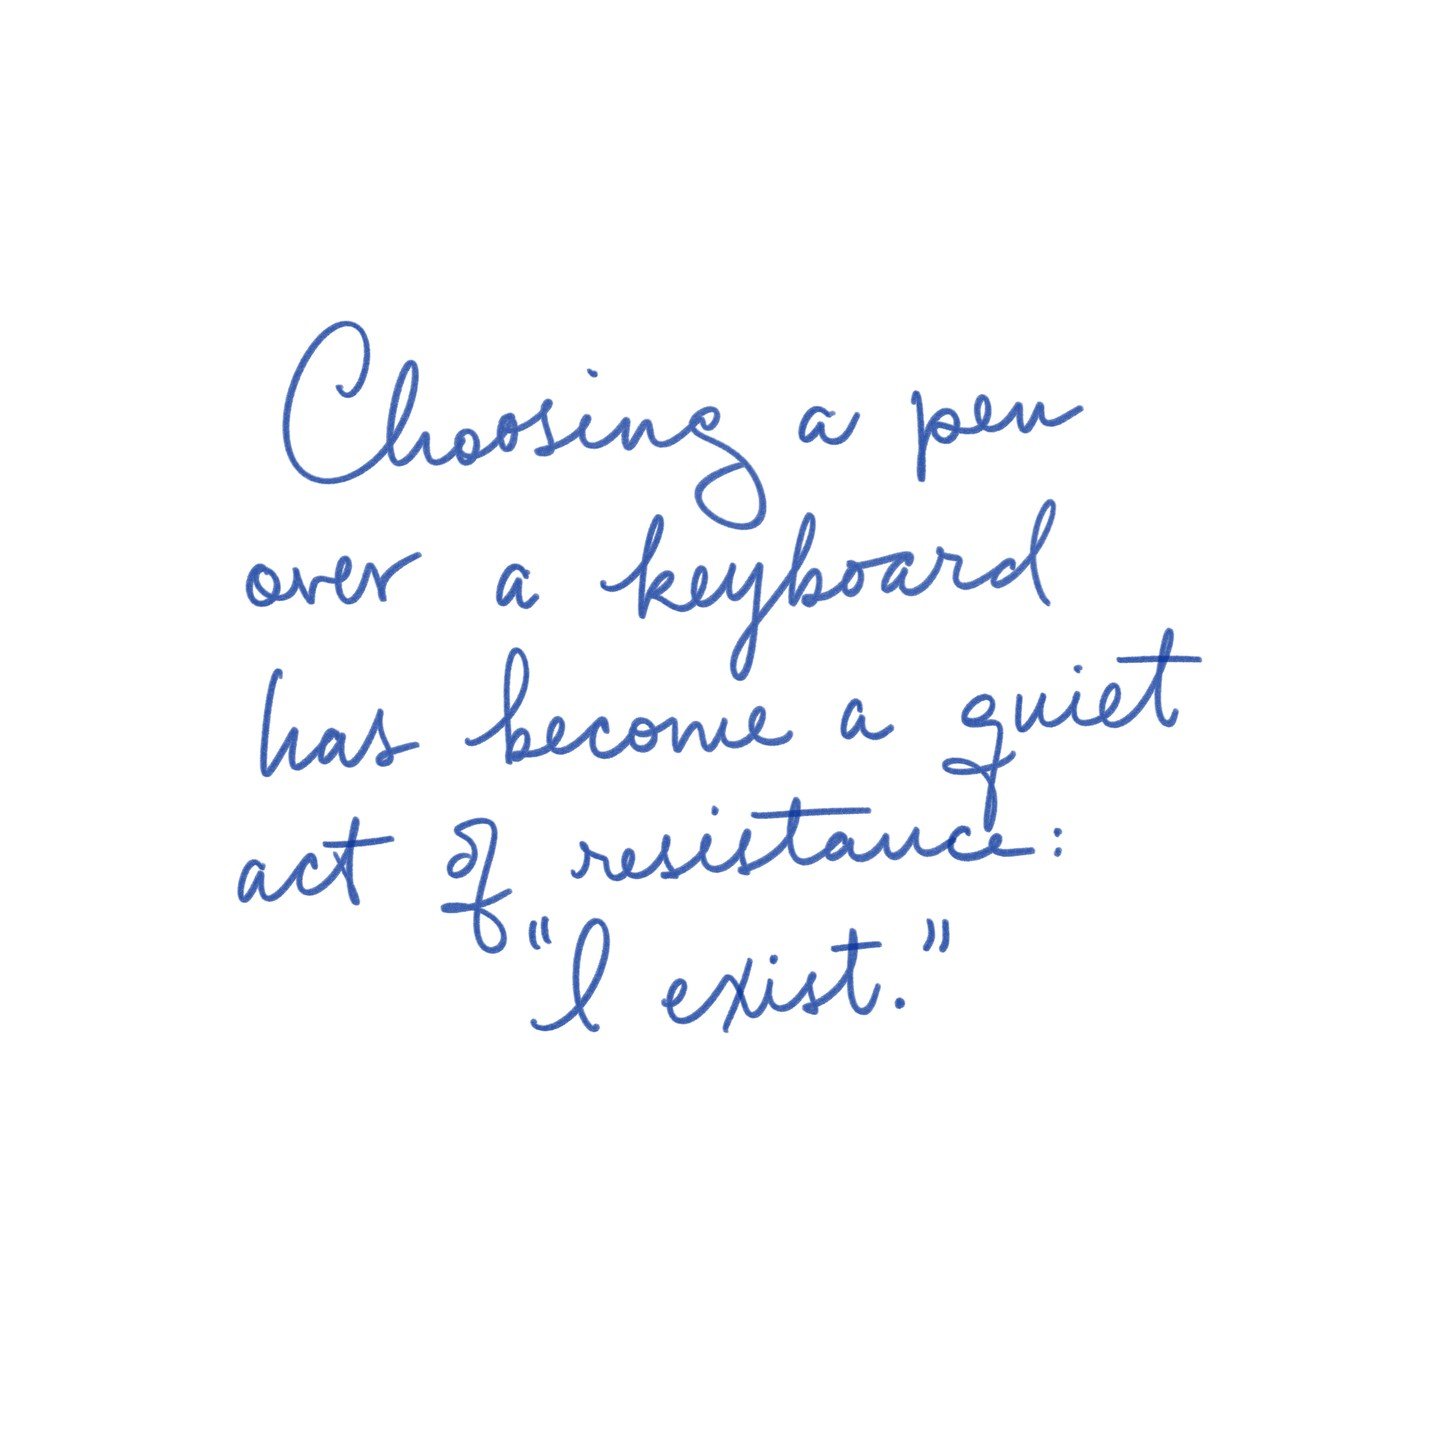 Choosing a pen
over a keyboard
has become a quiet
act of resistance:
“I exist.”